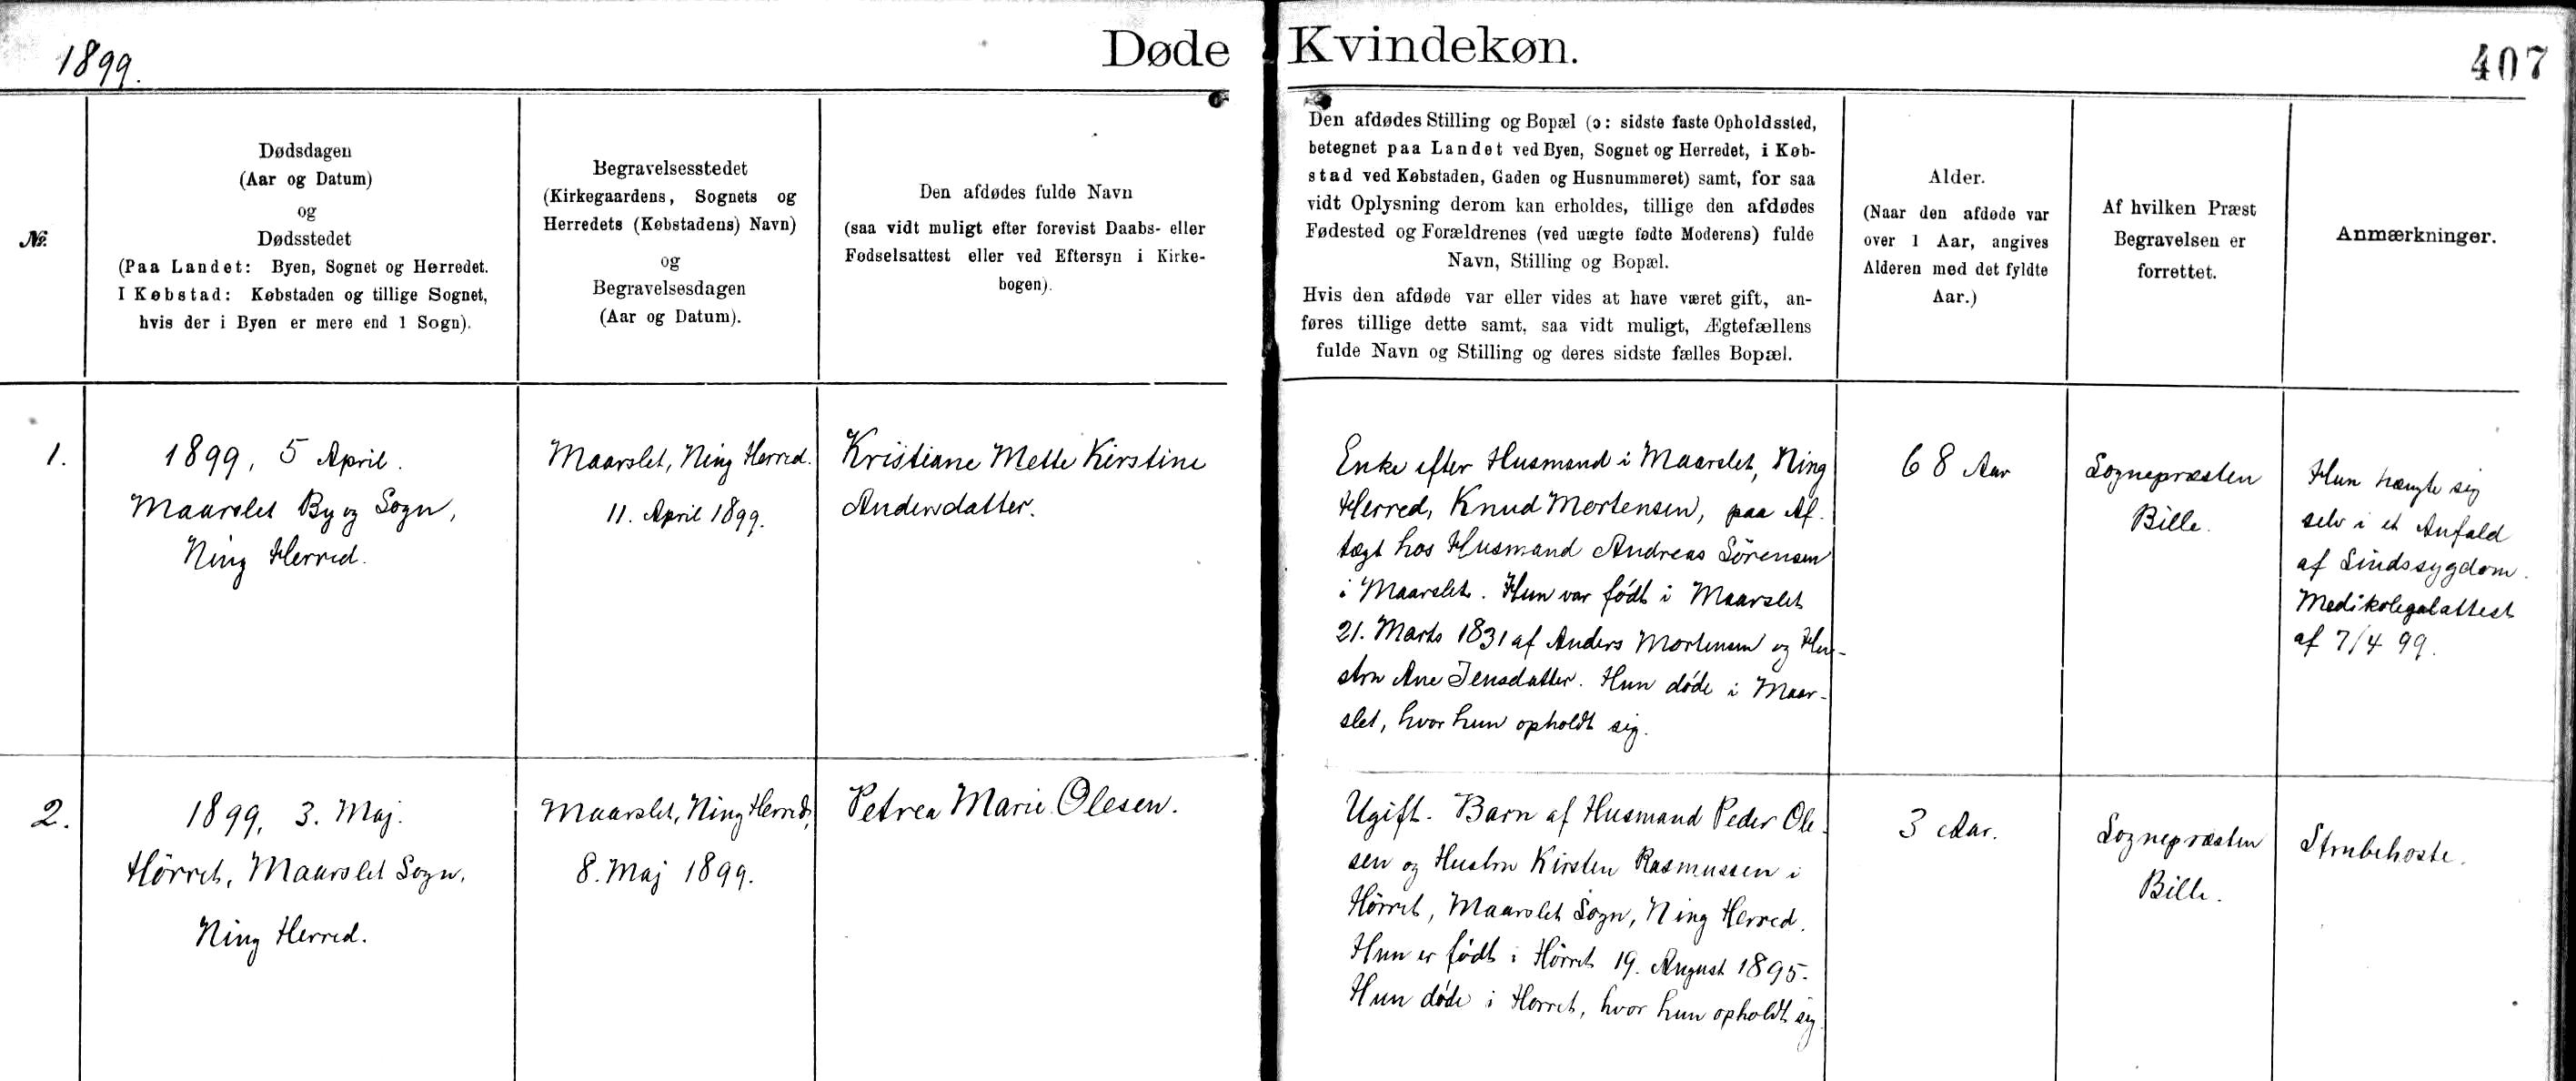 1899.
Døde Kvindekøn.
407
№.
Dødsdagen
(Aar og Datum)
og
Dødsstedet
(Paa Landet: Byen, Sognet og Herredet.
I Købstad: Købstaden og tillige Sognet,
hvis der i Byen er mere end 1 Sogn).
Begravelsesstedet
(Kirkegaardens, Sognets og
Herredets (Købstadens) Navn)
og
Begravelsesdagen
(Aar og Datum).
Den afdødes fulde Navn
(saa vidt muligt efter forevist Daabs- eller
Fødselsattest eller ved Eftersyn i Kirke-
bogen).
Den afdødes Stilling og Bopæl (ɔ: sidste faste Opholdssted,
betegnet paa Landet ved Byen, Sognet og Herredet, i Køb-
stad ved Købstaden, Gaden og Husnummeret) samt, for saa
vidt Oplysning derom kan erholdes, tillige den afdødes
Fødested og Forældrenes (ved uægte fødte Moderens) fulde
Navn, Stilling og Bopæl.
Hvis den afdøde var eller vides at have været gift, an-
føres tillige dette samt, saa vidt muligt, Ægtefællens
fulde Navn og Stilling og deres sidste fælles Bopæl.
Alder.
(Naar den afdøde var
over 1 Aar, angives
Alderen med det fyldte
Aar.)
Af hvilken Præst
Begravelsen er
forrettet.
Anmærkninger.
1.
1899, 5 April.
Maarslet By og Sogn,
Ning Herred.
Maarslet, Ning Herred.
11. April 1899.
Kristiane Mette Kirstine
Andersdatter.
Enke efter Husmand i Maarslet, Ning
Herred, Knud Mortensen, paa Af-
tægt hos Husmand Andreas Sörensen
i Maarslet. Hun var född i Maarslet
21. Marts 1831 af Anders Mortensen og Hu-
stru Ane Jensdatter. Hun döde i Maar-
slet, hvor hun opholdt sig.
68 Aar
Sognepræsten
Bille.
Hun hængte sig
selv i et Anfald
af Sindssygdom.
Medikolegalattest
af 7/4 99.
2.
1899, 3. Maj.
Hörret, Maarslet Sogn,
Ning Herred.
Maarslet, Ning Herred,
8. Maj 1899.
Petrea Marie Olesen.
Ugift. Barn af Husmand Peder Ole-
sen og Hustru Kirsten Rasmussen i
Hörret, Maarslet Sogn, Ning Herred.
Hun er födt i Hörret 19. August 1895.
Hun döde i Hörret, hvor hun opholdt sig.
3 Aar.
Sognepræsten
Bille.
Strubehoste.